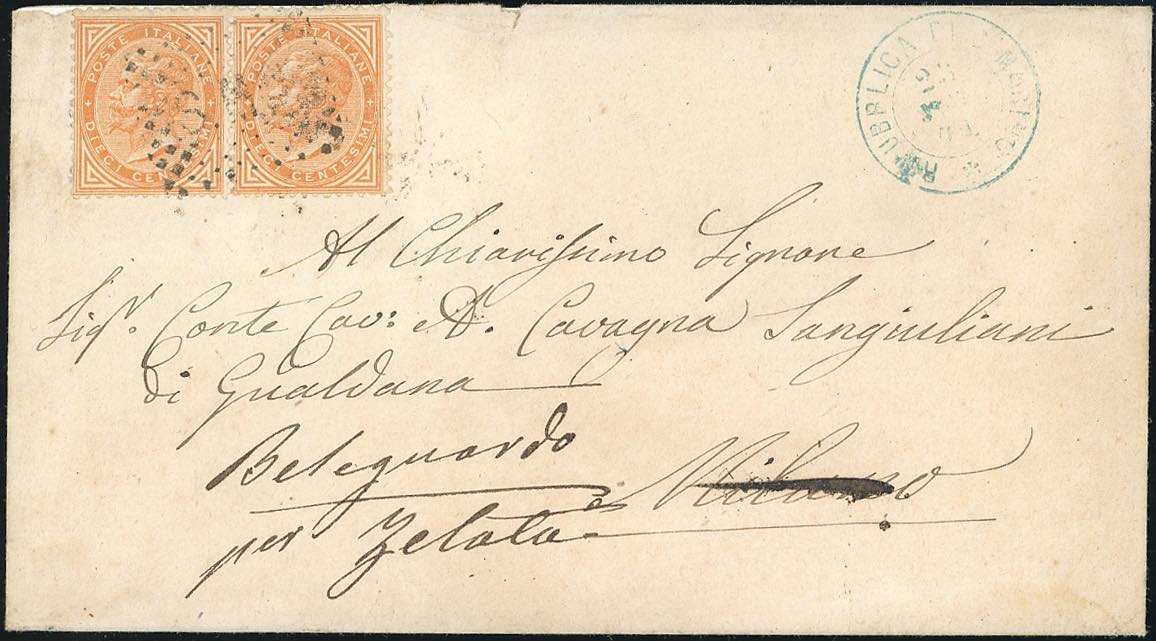 POSTE ITALIANE
DIECI CENTESIMI
POSTE ITALIANE
DIECI CENTESIMI
REPUBBLICA DI S. MARINO
Al Chiarissimo Signore
Sigr. Conte Cav: A. Cavagna Sangiuliani
di Gualdana
Beteguardo
Milano
per Zelata